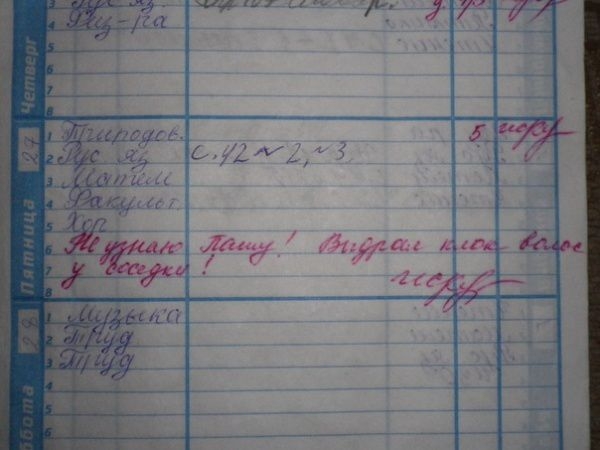 3 Рус яз.
4 Физ-ра
Четверг
1 Природов. 5
2 Рус яз с. 42 № 2, № 3.
3 Матем
4 Факульт.
5 Хор
6 Не узнаю Пашу! Выдрал клок волос
7 у соседки!
8
Пятница 27
1 Музыка
2 Труд
3 Труд
4
5
6
Суббота 28